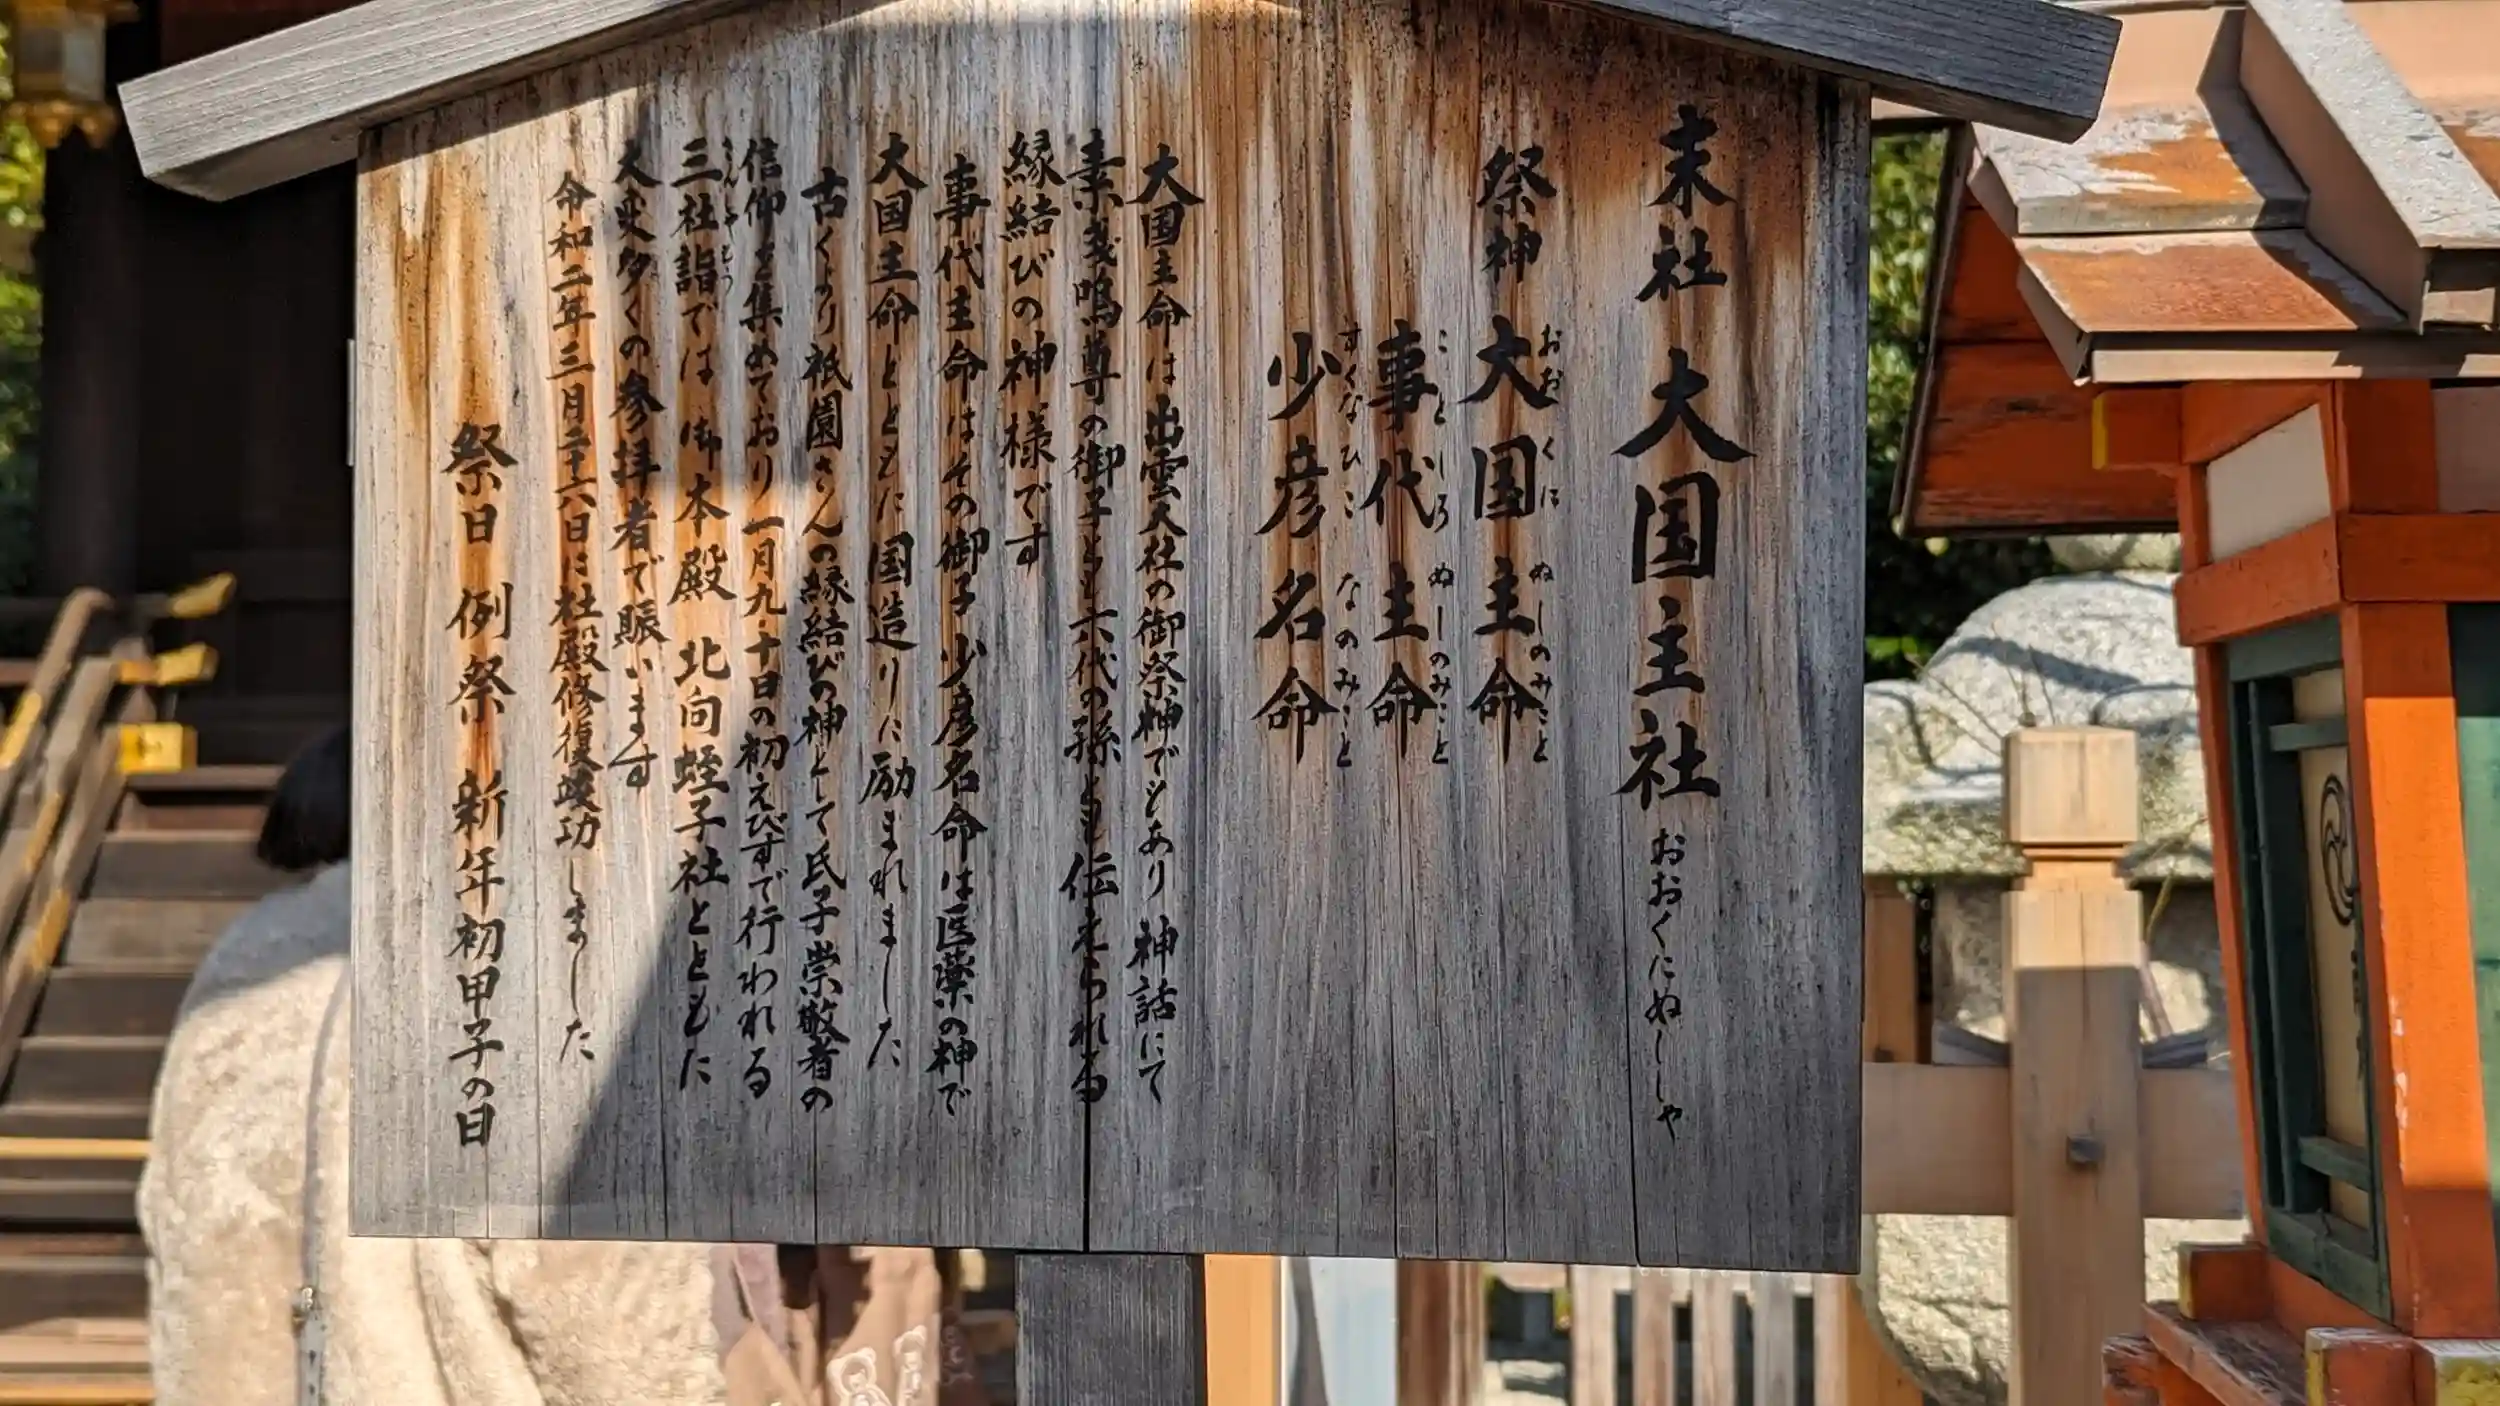 末社 大国主社 おおくにぬししゃ
祭神 大国主命 おおくにぬしのみこと
事代主命 ことしろぬしのみこと
少彦名命 すくなひこなのみこと
大国主命は出雲大社の御祭神でもあり神話にて
素戔嗚尊の御子とも六代の孫とも伝えられる
縁結びの神様です
事代主命はその御子 少彦名命は医薬の神で
大国主命とともに国造りに励まれました
古くより祇園さんの縁結びの神として氏子崇敬者の
信仰を集めており一月九・十日の初えびすで行われる
三社詣では 御本殿 北向蛭子社とともに
大変多くの参拝者で賑います
令和二年三月二十六日に社殿修復竣功しました
祭日 例祭 新年初甲子の日